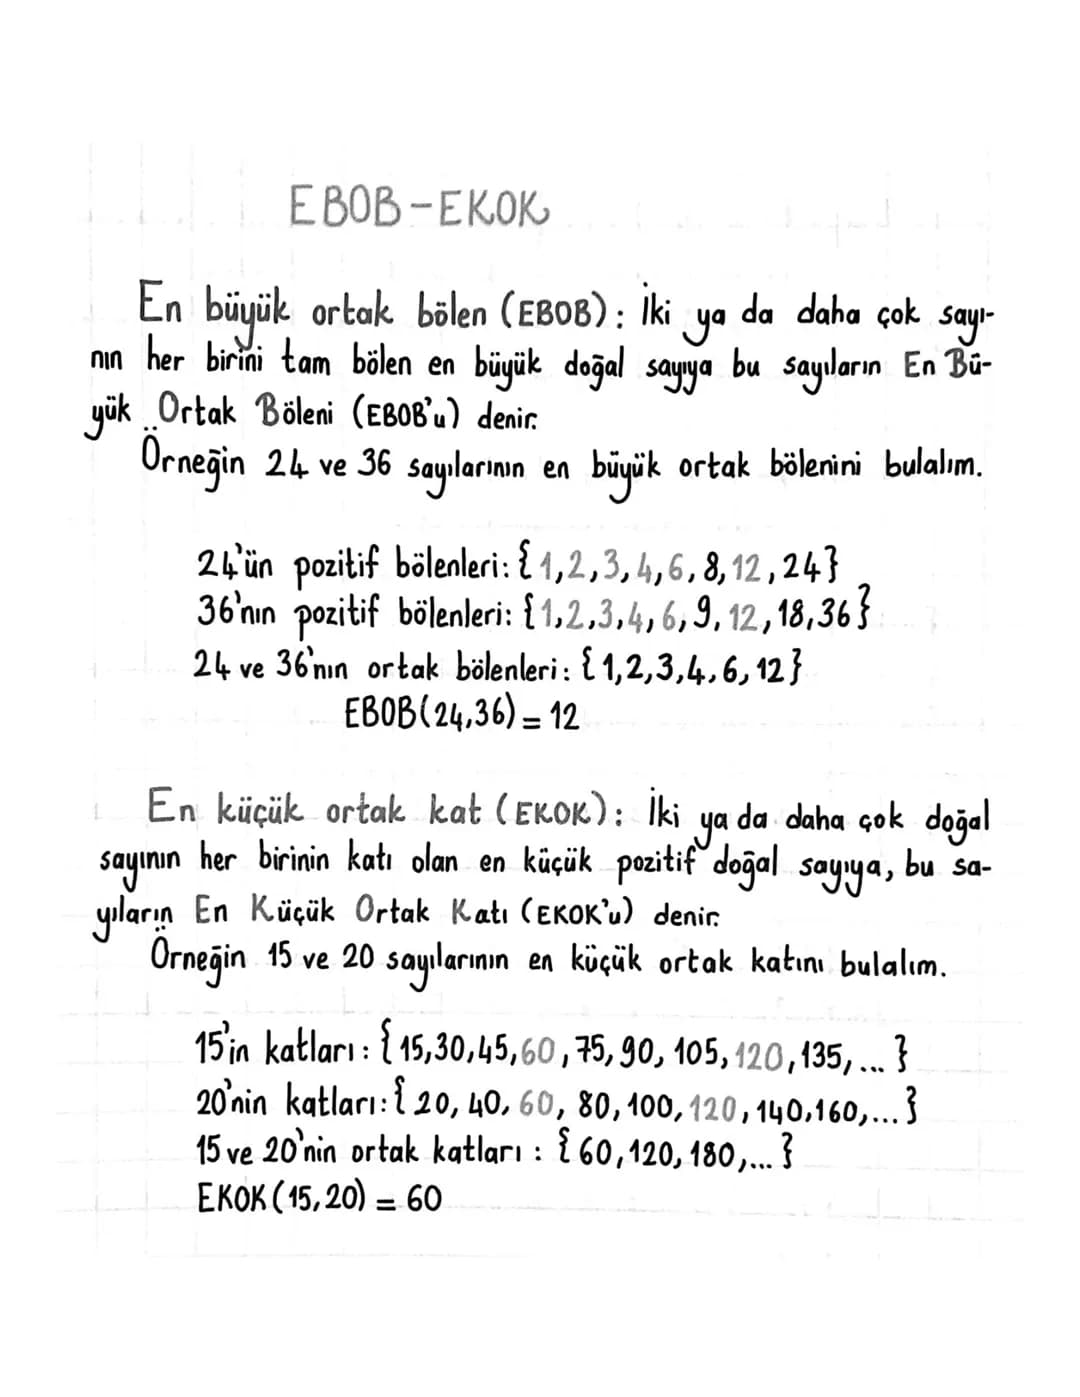 EBOB-EKOK
En büyük ortak bölen (EBOB): İki ya da daha çok sayı-
nın her birini tam bölen en büyük doğal sayıya bu sayıların En Bü-
yük Ortak Böleni (EBOB'u) denir.
Örneğin 24 ve 36 sayılarının en büyük ortak bölenini bulalım.
24'ün pozitif bölenleri: {1,2,3,4,6,8,12,24}
36'nın pozitif bölenleri: {1,2,3,4,6,9,12,18,36}
24 ve 36'nın ortak bölenleri: {1,2,3,4,6,12}
EBOB(24,36) = 12
En küçük ortak kat (EKOK): İki ya da daha çok doğal
sayının her birinin katı olan en küçük pozitif doğal sayıya, bu sa-
yıların En Küçük Ortak Katı (EKOK'u) denir.
Örneğin 15 ve 20 sayılarının en küçük ortak katını bulalım.
15'in katları: {15,30,45,60,75,90,105,120,135,...}
20'nin katları: {20,40,60,80,100,120,140,160,...}
15 ve 20'nin ortak katları : {60,120,180,...}
EKOK(15,20) = 60